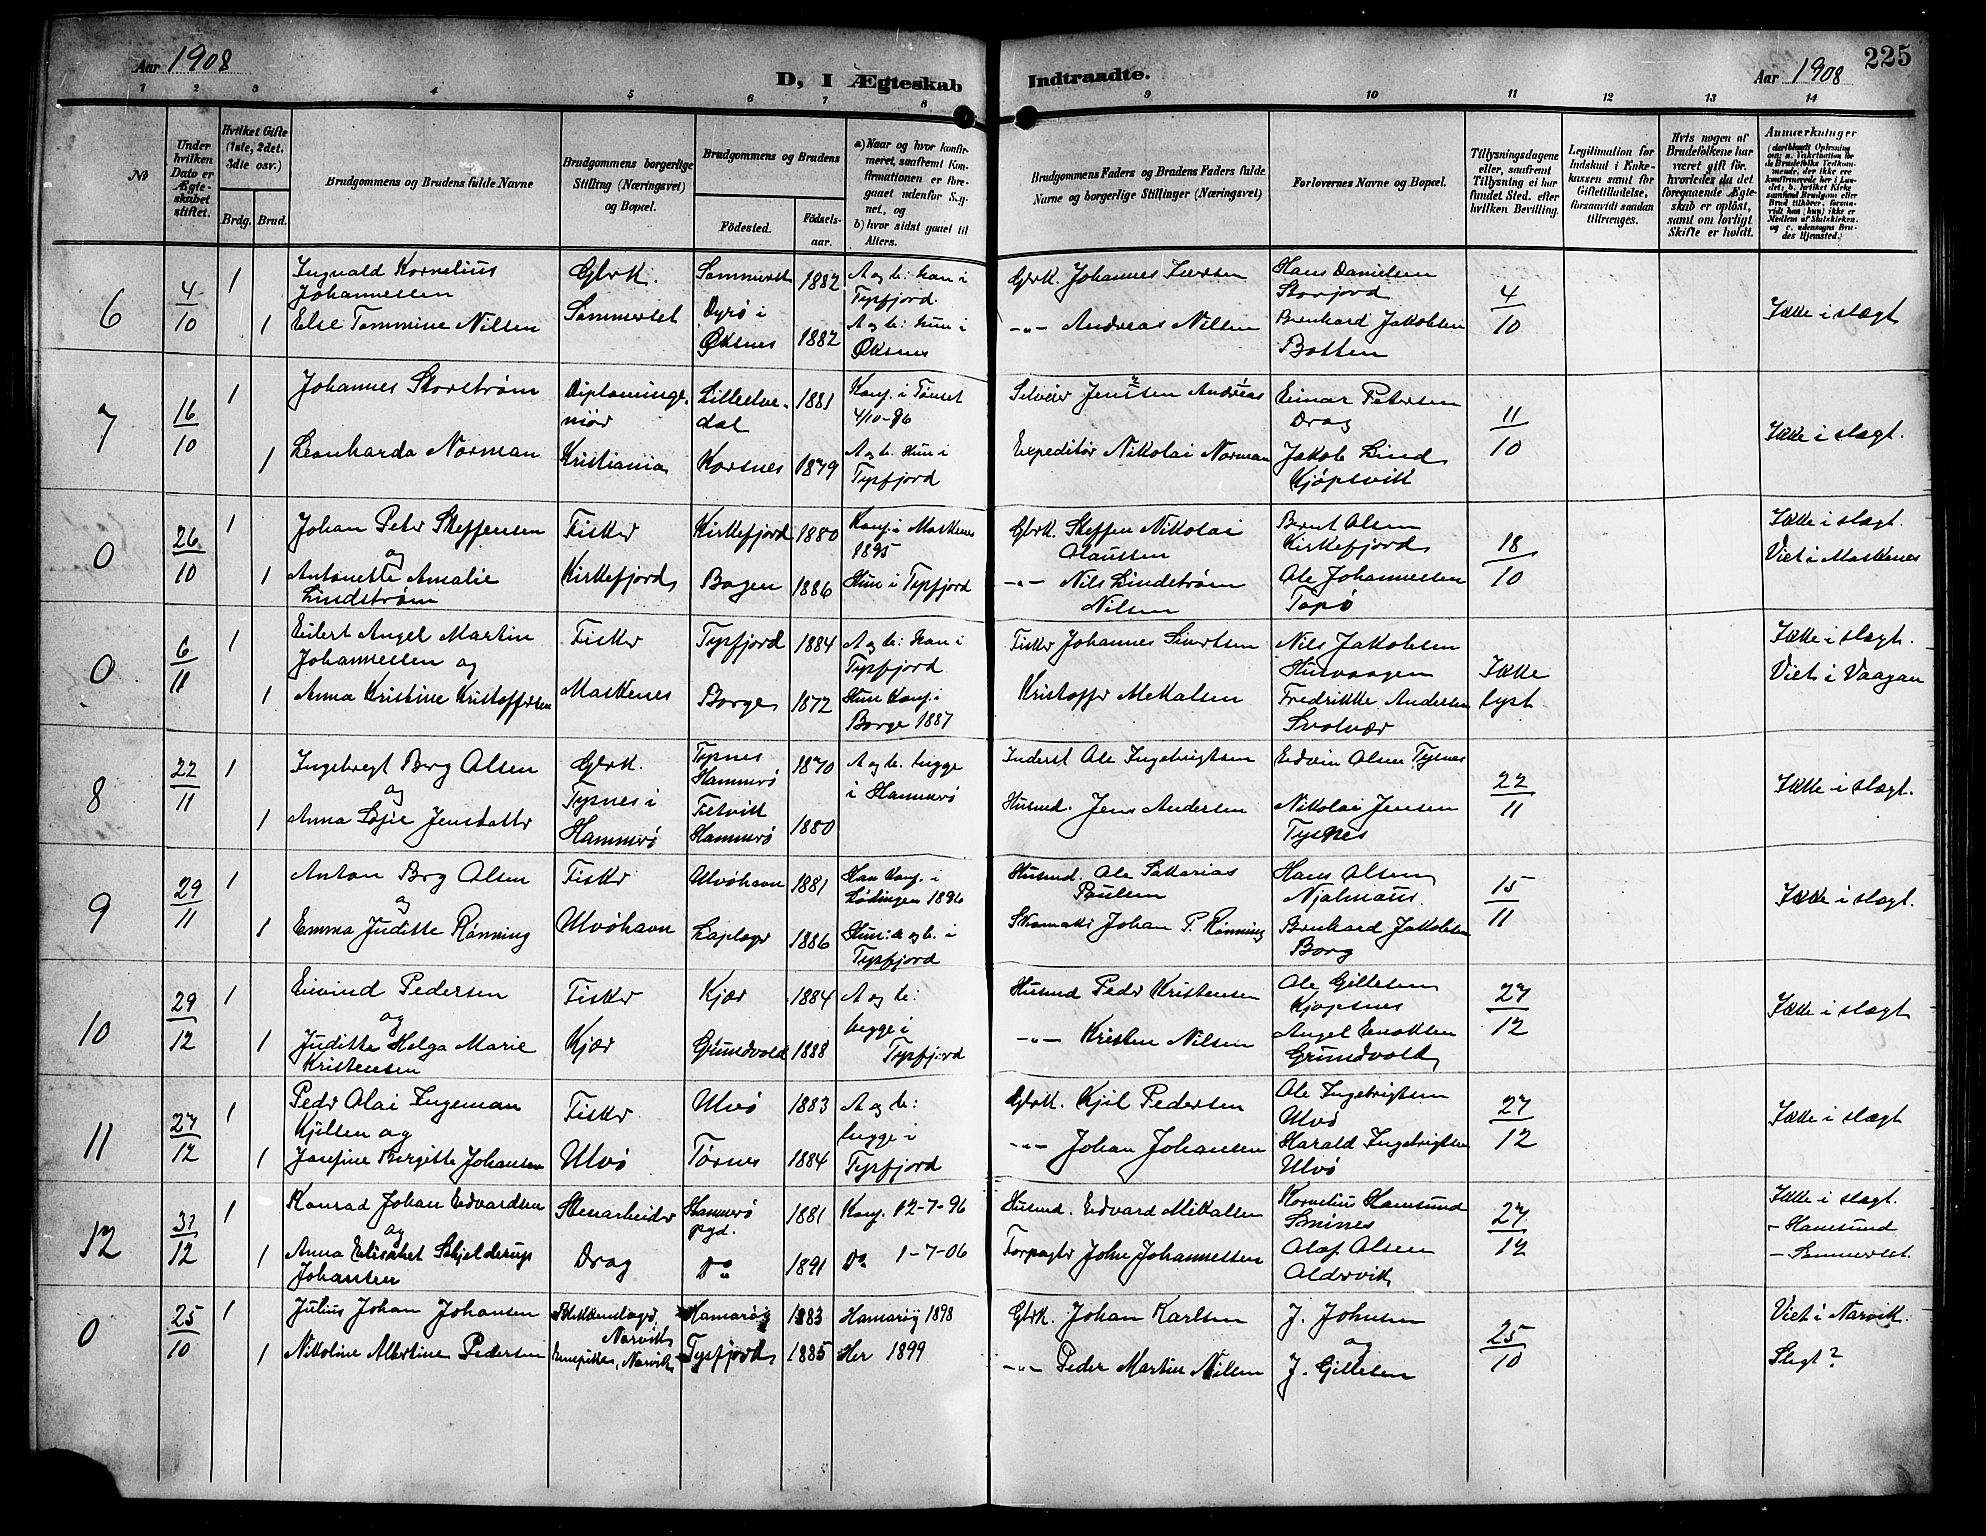 Aar 1908
D, I Ægteskab Indtraadte.
Aar 1908
225
1 2 3 4 5 6 7 8 9 10 11 12 13 14
No
Under hvilken Dato er Ægteskabet stiftet.
Hvilket Gifte (1ste, 2det. 3die osv.)
Brdg. Brud.
Brudgommens og Brudens fulde Navne
Brudgommens borgerlige Stilling (Næringsvei) og Bopæl.
Brudgommens og Brudens
Födested.
Födselsaar.
a) Naar og hvor konfirmeret, saafremt Konfirmationen er foregaaet udenfor Sognet, og
b) hvor sidst gaaet til Alters.
Brudgommens Faders og Brudens Faders fulde Navne og borgerlige Stillinger (Næringsvei)
Forlovernes Navne og Bopæl.
Tillysningsdagene eller, saafremt Tillysning ei har fundet Sted. efter hvilken Bevilling.
Legitimation for Indskud i Enkekassen samt for Giftetilladelse, forsaavidt saadan tiltrænges.
Hvis nogen af Brudefolkene har været gift för, hvorledes da det foregaaende Ægteskab er oplöst, samt om lovligt Skifte er holdt.
Anmærkninger
6 4/10 1 Ingvald Kornelius Johannessen Gbrk. Sommerset 1882 A og b: han i Tysfjord. Gbrk. Johannes Hans Danielsen Storjord 4/10 Ikke i slægt
1 Else Tommine Nilsen Sommerset Dyrø i Øksnes 1882 A og b: hun i Øksnes -"- Andreas Nilsen Bernhard Jakobsen Botten
7 16/10 1 Johannes Storstrøm Diplomingeniør Lilleelvedal 1881 Konf. i Tønset 4/10-96 Selveier Jenssen Andreas Einar Petersen Drag 11/10 Ikke i slægt.
1 Leonharda Norman Kristiania Korsnes 1879 A og b. Hun i Tysfjord Expeditør Nikolai Norman Jakob Lind Kjøpsvik
0 26/10 1 Johan Peter Steffensen og Fisker Kirkefjord 1880 Konf. i Moskenes 1895 Gbrk. Steffen Nikolai Olaussen Bernt Olsen Kirkefjord 18/10 Ikke i slægt. Viet i Moskenes
1 Antonette Amalie Lindstrøm Kirkefjord Bogen 1886 Hun i Tysfjord -"- Nils Lindstrøm Nilsen Ole Johannessen Topø
0 6/11 1 Eilert Angel Martin Johannessen og Fisker Tysfjord 1884 A og b: Han i Tysfjord Fisker Johannes Sivertsen Nils Jakobsen Ikke lyst Ikke i slægt. Viet i Vaagan
1 Anna Kristine Kristoffersen Moskenes Borge 1872 Hun Konf. i Borge 1887 Kristoffer Mekalsen Fredrikke Andersen Svolvær
8 22/11 1 Ingebregt Berg Olsen og Gbrk. Tysnes Hammerø 1870 A og b. begge i Hammerø Inderst Ole Ingebrigtsen Edvin Olsen Tysnes 22/11 Ikke i slægt.
1 Anna Lovise Jensdatter Tysnes i Hammerø Tetvik Hammerø 1880 Husmd. Jens Andersen Nikolai Jensen Tysnes
9 29/11 1 Anton Berg Olsen og Fisker Ulvøhavn 1881 Han Konf. i Lødingen 1896 Husmd. Ole Sakarias Paulsen Hans Olsen 15/11 Ikke i slægt.
1 Emma Juditte Rønning Ulvøhavn 1886 Hun: a og b. i Tysfjord Skomaker Johan P. Rønning Bernhard Jakobsen Borg
10 29/12 1 Eivind Pedersen og Fisker Kjær 1884 A og b: begge i Tysfjord Husmd Peder Kristensen Ole Gillesen Kjøpsnes 27/12 Ikke i slægt
1 Juditte Helga Marie Kristensen Kjær Grundvold 1888 -"- Kristen Nilsen Angel Enoksen Grundvold
11 27/12 1 Peder Olai Ingeman Kjilsen og Fisker Ulvø 1883 A og b: begge i Tysfjord Gbrk. Kjil Pedersen Ole Ingebrigtsen Ulvø 27/12 Ikke i slægt
1 Josefine Bergitte Johansen Ulvø Tørnes 1884 -"- Johan Johansen Harald Ingebrigtsen Ulvø
12 31/12 1 Konrad Johan Edvardsen og Stenarbeider Hammerø pgd. 1881 Konf. 12-7-96 Husmd. Edvard Mikalsen Kornelius Hamsund 27/12 Ikke i slægt. - Hamsund
1 Anna Elisabet Skjelderup Johansen Drag Do 1891 Do 1-7-06 Forpagter John Johannessen Olaf Olsen Aldervik - Sommerset
0 25/10 1 Julius Johan Johansen Blikkenslager, Narvik Hamarøy 1883 Hamarøy 1898 Gbrk. Johan Karlsen J. Johnsen og 25/10 Viet i Narvik.
1 Nikoline Albertine Pedersen Narvik Tysfjord 1885 Her 1899 -"- Peder Martin Nilsen J. Gillesen Slegt?